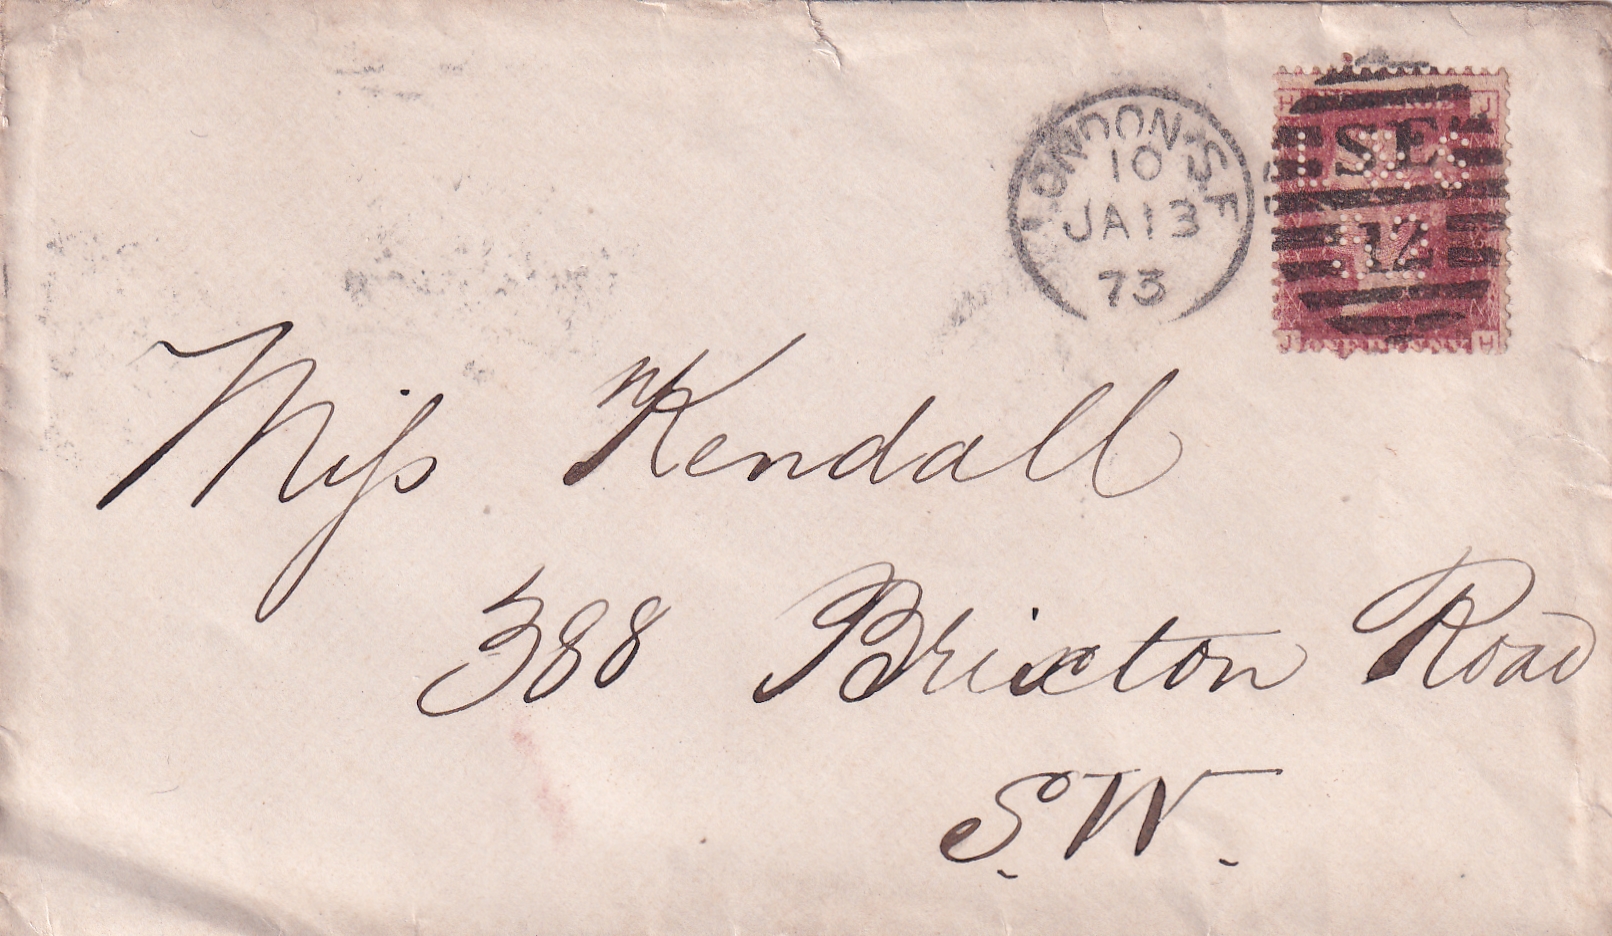 LONDON·S.E
10
JA 13
73
SE
12
H J
J H
ONE PENNY
Miſs Kendall
388 Brixton Road
S.W.